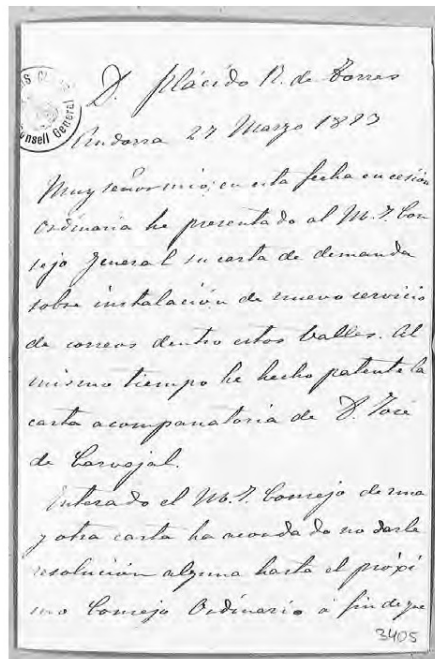 D. Plácido R. de Torres
Andorra 27 Marzo 1893
Consell General
Muy señor mio: en esta fecha en cesión
Ordinaria he presentado al M. I. Con
sejo General su carta de demanda
sobre instalación de nuevo servicio
de correos dentro estos Valles. Al
mismo tiempo he hecho patente la
carta acompanatoria de D. José
de Carvajal.
Enterado el M. I. Consejo de una
y otra carta ha acordado no darle
resolución alguna hasta el próxi
mo Consejo Ordinario á fin de que
3405